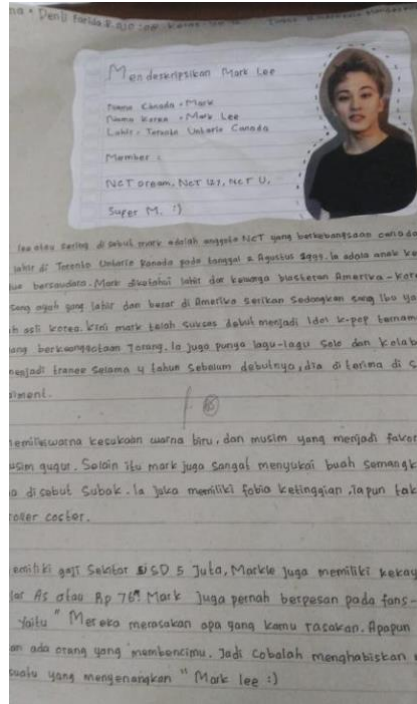 Mendeskripsikan Mark Lee
Nama Canada : Mark
Nama Korea : Mark Lee
Lahir : Toronto Untario Canada
Member :
NCT Dream, NCT 127, NCT U,
Super M. :)
lee atau sering di sebut mark adalah anggota NCT yang berkebangsaan canada
lahir di Toronto Untario Kanada pada tanggal 2 Agustus . Ia adala anak ke
dua bersaudara. Mark diketahui lahir dar keluarga blasteran Amerika - Kore
sang ayah yang lahir dan besar di Amerika serikan sedangkan sang ibu ya
h asli korea. kini mark telah sukses debut menjadi Idol k-pop ternam
ang Torang. Ia juga punga lagu-lagu solo dan kolab
menjadi tranee selama 4 tahun sebelum debutnya, dia di terima di S
memiliki warna kesukaan warna biru, dan musim yang menjadi favor
usim gugur. Selain itu mark juga sangat menyukai buah semangk
a disebut Subak. Ia juka memiliki fobia ketinggian, iapun tak
roller coster.
emiliki gaji Sekitar USD 5 Juta, Marklee juga memiliki kekay
lar As atau Rp Mark juga pernah berpesan pada fans-
yaitu " Mereka merasakan apa yang kamu rasakan. Apapun
an ada orang yang membencimu. Jadi cobalah menghabiskan
suatu yang menyenangkan " Mark lee :)